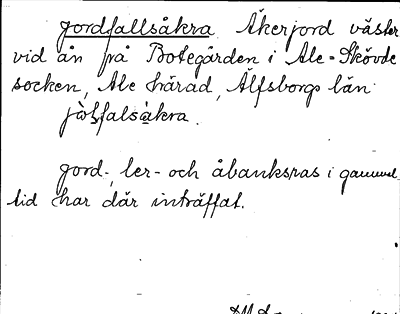 Jordfallsåkra Åkerjord väster
vid ån på Botegården i Ale-Skövde
socken, Ale härad, Älfsborgs län
jòlfalsàkra.
Jord-, ler- och åbanksras i gammal
tid har där inträffat.